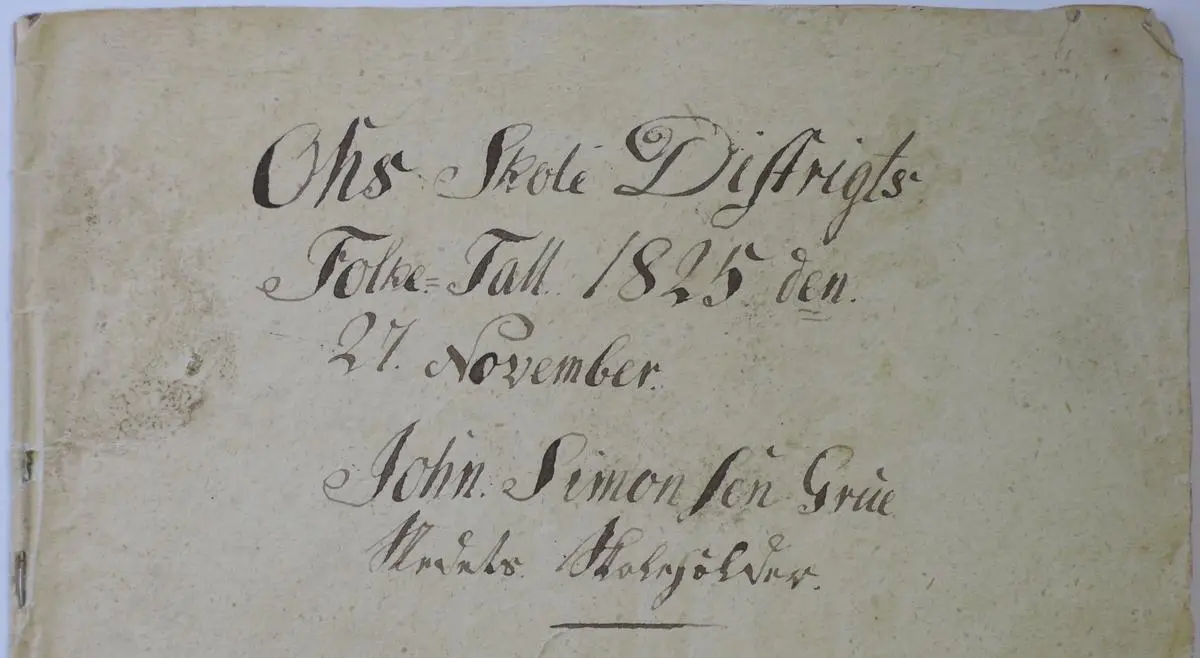 Ohs Skole Distrigts
Folke=Tall 1825 den.
27. November.
John. Simonsen Grue
Stedets Skoleholder.